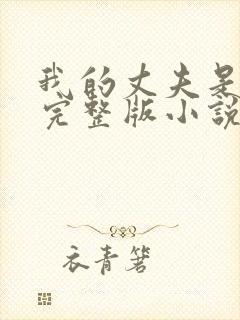 我的丈夫是
完整版小說
衣青箬